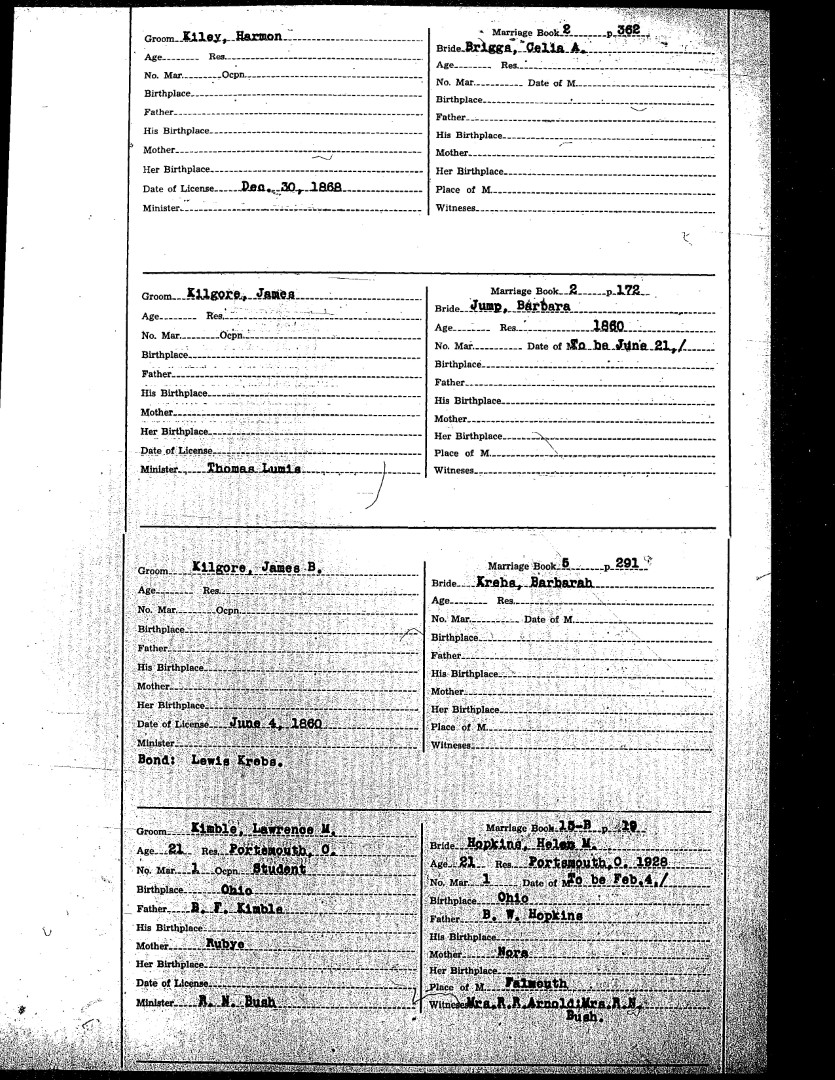 Groom Kiley, Harmon
Age Res.
No. Mar. Ocpn.
Birthplace
Father
His Birthplace
Mother
Her Birthplace
Date of License Dec. 30, 1868
Minister
Marriage Book 2 p. 362
Bride Briggs, Celia A.
Age Res.
No. Mar. Date of M.
Birthplace
Father
His Birthplace
Mother
Her Birthplace
Place of M.
Witneses
Groom Kilgore, James
Age Res.
No. Mar. Ocpn.
Birthplace
Father
His Birthplace
Mother
Her Birthplace
Date of License
Minister Thomas Lumis
Marriage Book 2 p. 172
Bride Jump, Barbara
Age Res. 1860
No. Mar. Date of M To be June 21,/
Birthplace
Father
His Birthplace
Mother
Her Birthplace
Place of M.
Witneses
Groom Kilgore, James B.
Age Res.
No. Mar. Ocpn.
Birthplace
Father
His Birthplace
Mother
Her Birthplace
Date of License June 4, 1860
Minister
Bond: Lewis Krebs.
Marriage Book 5 p. 291
Bride Krebs, Barbarah
Age Res.
No. Mar. Date of M.
Birthplace
Father
His Birthplace
Mother
Her Birthplace
Place of M.
Witneses
Groom Kimble, Lawrence M.
Age 21 Res. Portsmouth, O.
No. Mar. 1 Ocpn. Student
Birthplace Ohio
Father B. F. Kimble
His Birthplace
Mother Rubye
Her Birthplace
Date of License
Minister R. N. Bush
Marriage Book 15-B p. 19
Bride Hopkins, Helen M.
Age 21 Res. Portsmouth,O. 1928
No. Mar. 1 Date of M To be Feb.4,/
Birthplace Ohio
Father B. W. Hopkins
His Birthplace
Mother Nora
Her Birthplace
Place of M. Falmouth
Witneses Mrs.R.R.Arnold;Mrs.R.N.
Bush.